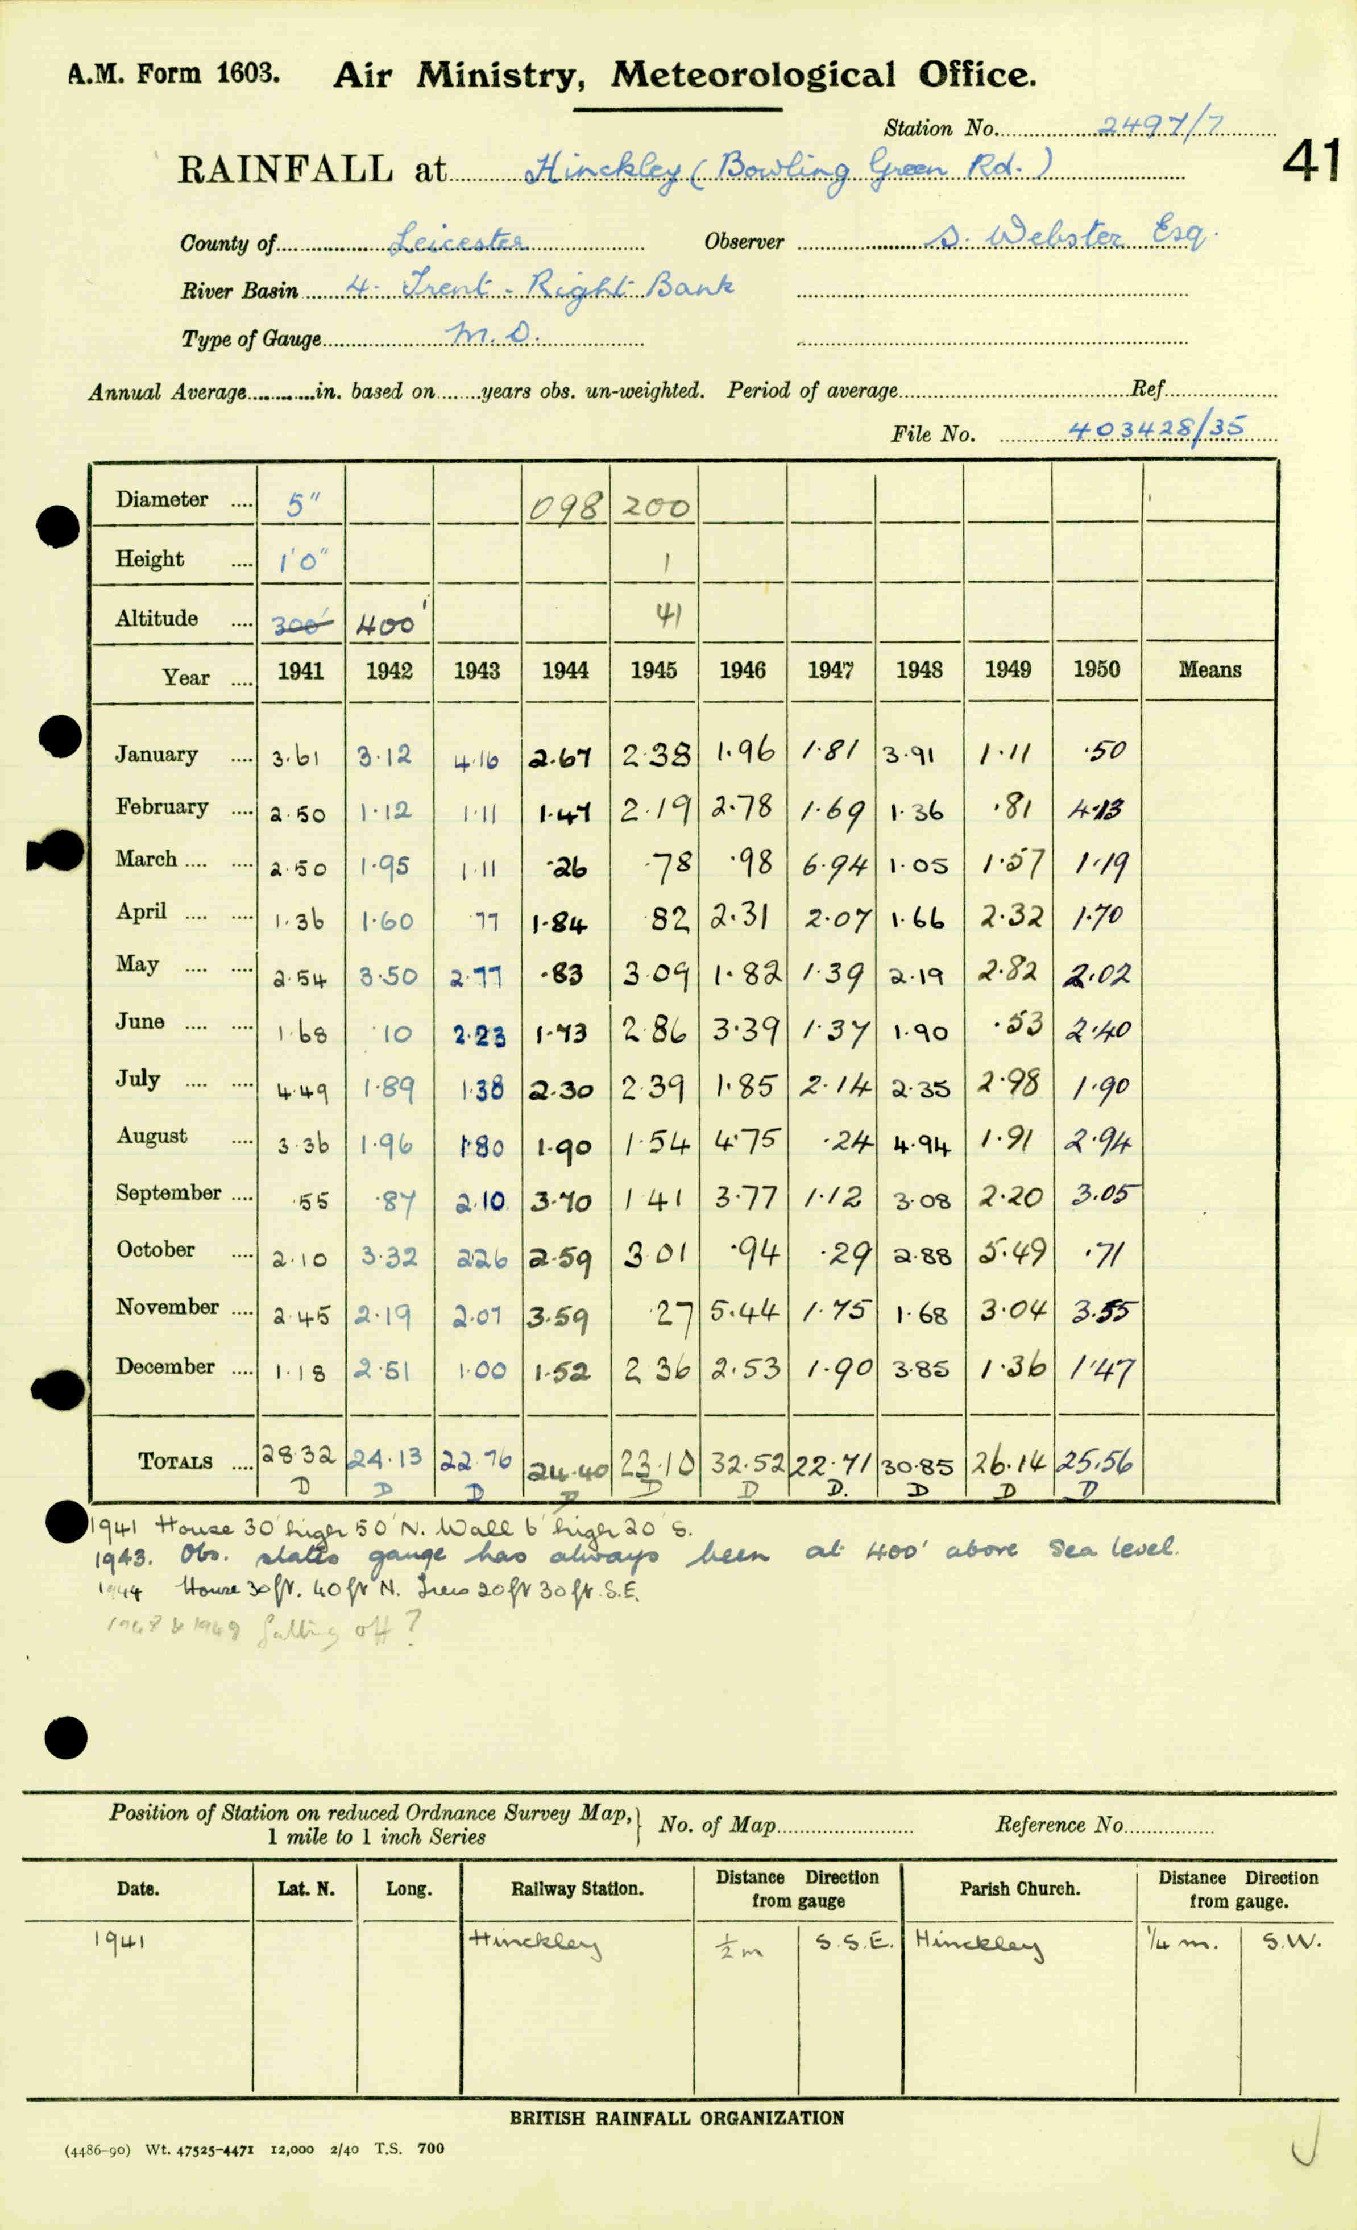 A.M. Form 1603. Air Ministry, Meteorological Office.
Station No. 2497/7
41
RAINFALL at Hinckley (Bowling Green Rd.)
County of Leicester Observer S. Webster Esq.
River Basin 4. Trent - Right Bank
Type of Gauge M.O.
Annual Average in. based on years obs. un-weighted. Period of average Ref.
File No. 403428/35
Diameter 5" 098 200
Height 1'0" 1
Altitude 300' 400' 41
Year 1941 1942 1943 1944 1945 1946 1947 1948 1949 1950 Means
January 3.61 3.12 4.16 2.67 2.38 1.96 1.81 3.91 1.11 .50
February 2.50 1.12 1.11 1.47 2.19 2.78 1.69 1.36 .81 4.13
March 2.50 1.95 1.11 .26 .78 .98 6.94 1.05 1.57 1.19
April 1.36 1.60 .77 1.84 82 2.31 2.07 1.66 2.32 1.70
May 2.54 3.50 2.77 .83 3.09 1.82 1.39 2.19 2.82 2.02
June 1.68 .10 2.23 1.73 2.86 3.39 1.37 1.90 .53 2.40
July 4.49 1.89 1.38 2.30 2.39 1.85 2.14 2.35 2.98 1.90
August 3.36 1.96 1.80 1.90 1.54 4.75 .24 4.94 1.91 2.94
September .55 .87 2.10 3.70 1.41 3.77 1.12 3.08 2.20 3.05
October 2.10 3.32 2.26 2.59 3.01 .94 .29 2.88 5.49 .71
November 2.45 2.19 2.07 3.59 .27 5.44 1.75 1.68 3.04 3.55
December 1.18 2.51 1.00 1.52 2.36 2.53 1.90 3.85 1.36 1.47
TOTALS 28.32 24.13 22.76 24.40 23.10 32.52 22.71 30.85 26.14 25.56
D D D D D D D. D D D
1941 House 30' high 50' N. Wall 6' high 20' S.
1943. Obs. states gauge has always been at 400' above Sea level.
1944 House 30ft. 40ft N. Trees 20ft 30ft S.E.
1948 & 1949 falling off?
Position of Station on reduced Ordnance Survey Map, 1 mile to 1 inch Series No. of Map Reference No.
Date. Lat. N. Long. Railway Station. Distance Direction from gauge Parish Church. Distance Direction from gauge.
1941 Hinckley ½ m S.S.E. Hinckley ¼ m. S.W.
BRITISH RAINFALL ORGANIZATION
(4486-90) Wt. 47525-4471 12,000 2/40 T.S. 700